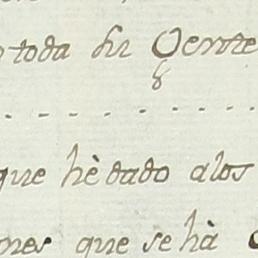 toda su Gente
que hè dado alos
nes que se hà